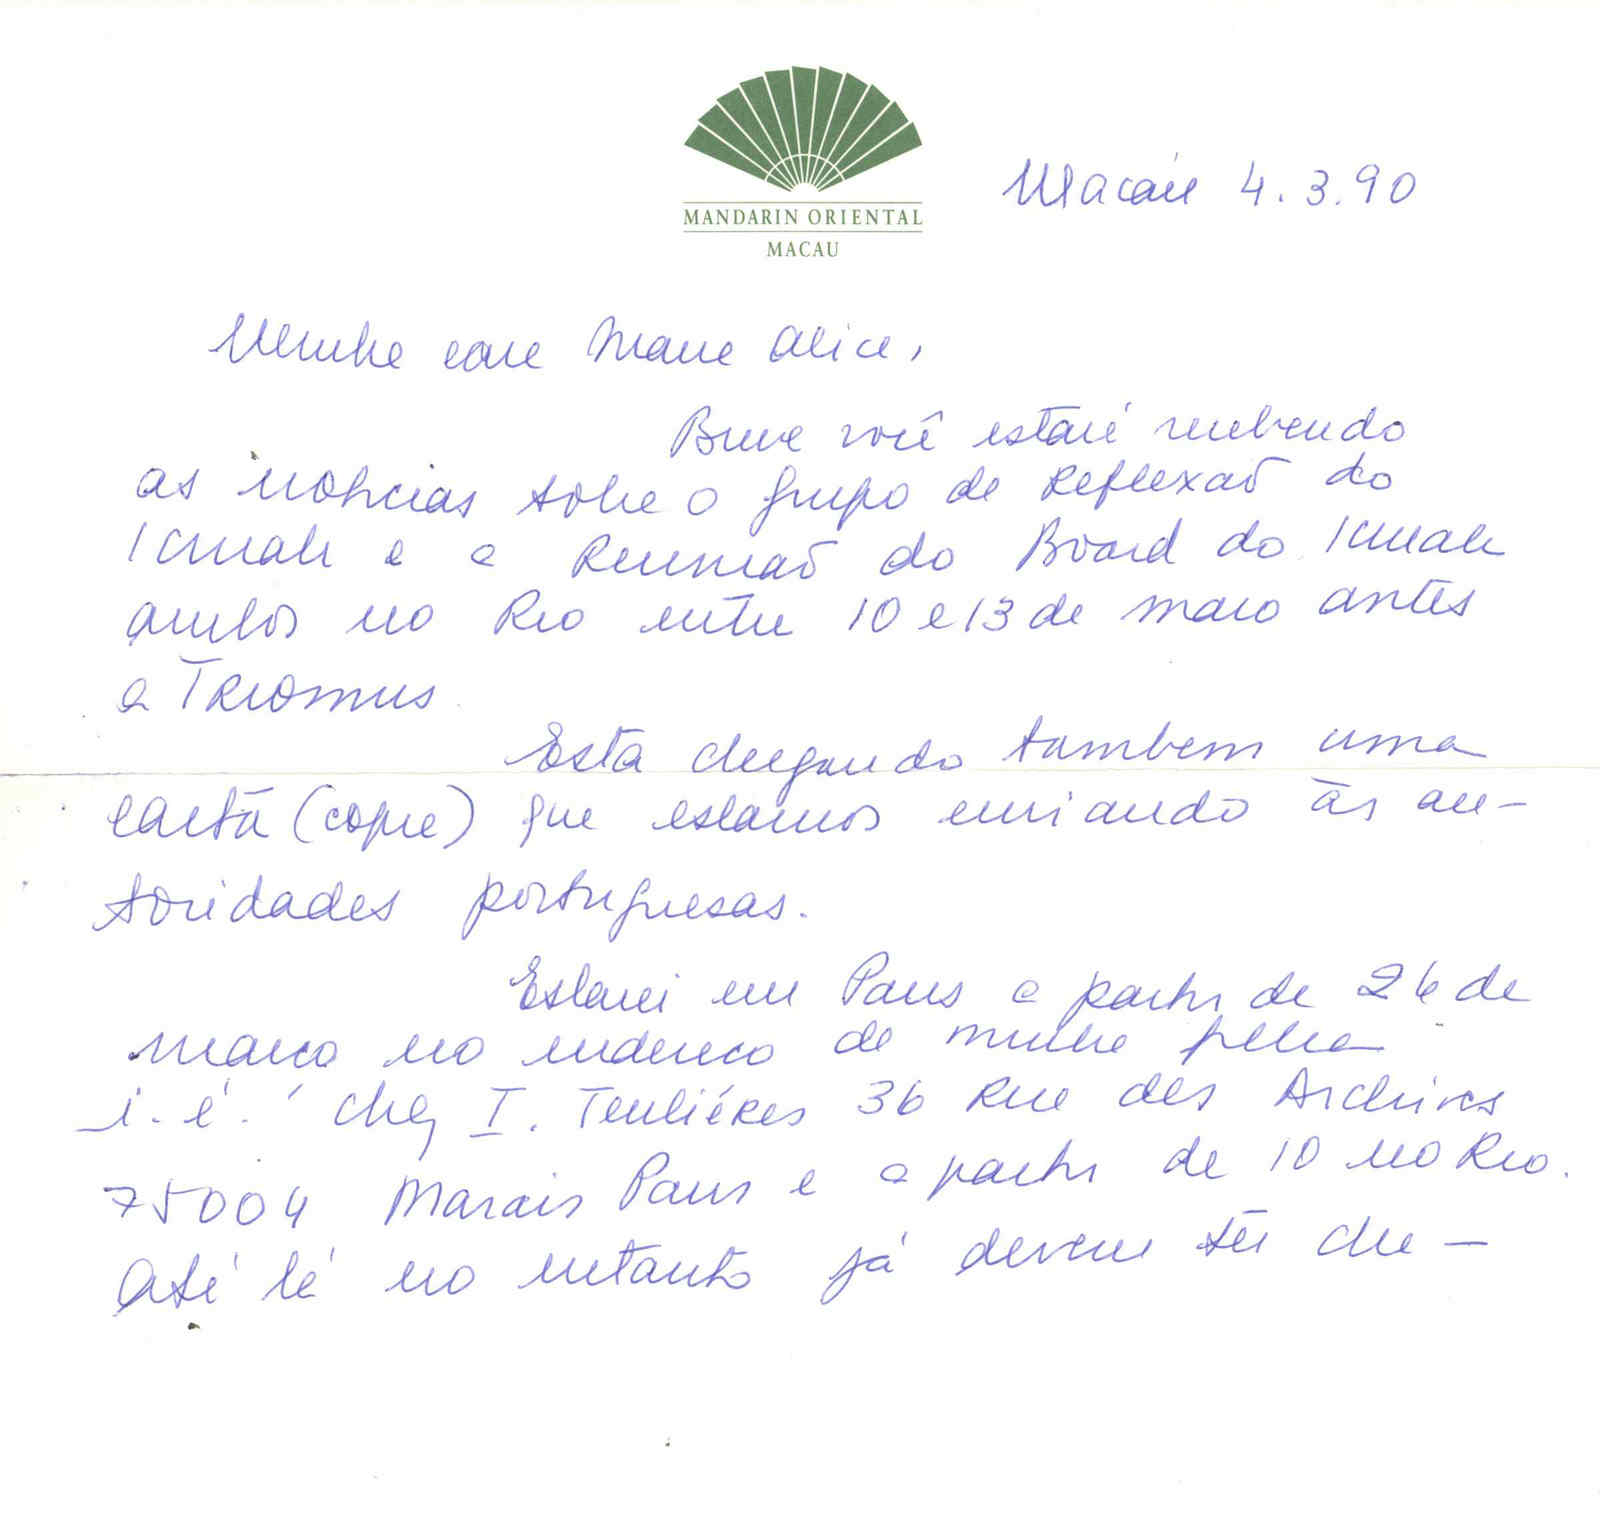 MANDARIN ORIENTAL
MACAU
Macáu 4.3.90
Minha cara Maria Alice,
Breve você estará recebendo
as noticias sobre o grupo de Reflexão do
Icmah e a Reunião do Board do Icmah
ambos no Rio entre 10 e 13 de maio antes
a Triomus.
Esta chegando tambem uma
carta (copia) que estamos enviando às au-
toridades portuguesas.
Estarei em Paris a partir de 26 de
março no endereço de minha filha
i.é. chez I. Teulières 36 Rue des Archives
75004 Marais Paris e a partir de 10 no Rio.
Até lá no entanto já devem ter che-